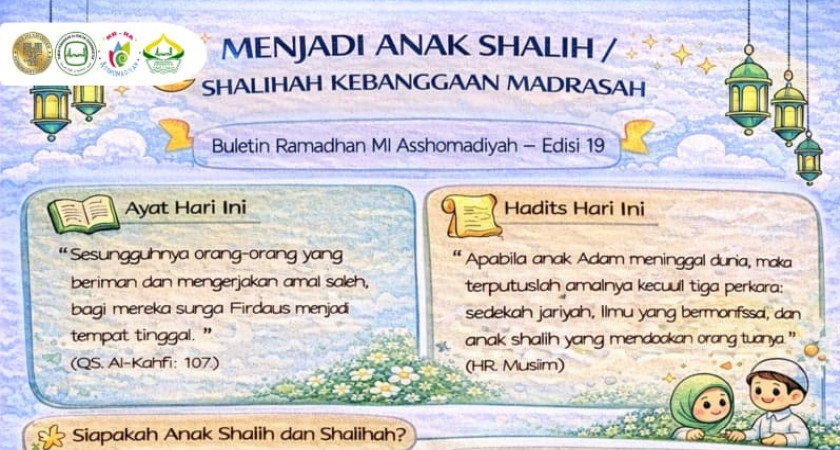 MENJADI ANAK SHALIH /
SHALIHAH KEBANGGAAN MADRASAH
Buletin Ramadhan MI Asshomadiyah – Edisi 19
Ayat Hari Ini
“ Sesungguhnya orang-orang yang
beriman dan mengerjakan amal saleh,
bagi mereka surga Firdaus menjadi
tempat tinggal. ”
(QS. Al-Kahfi: 107.)
Hadits Hari Ini
“ Apabila anak Adam meninggal dunia, maka
terputuslah amalnya kecuull tiga perkara:
sedekah jariyah, Ilmu yang bermonfssai, dan
anak shalih yang mendoakan orang tuanya. ”
(HR. Musiim)
Siapakah Anak Shalih dan Shalihah?